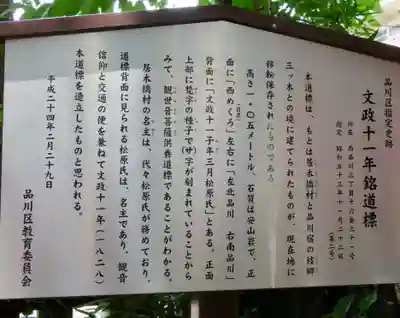 品川区指定史跡
文政十一年銘道標
所在 西品川三丁目十六番三十一号
指定 昭和五十三年十一月二十二日
（第二号）
本道標は、もとは居木橋村と品川宿の枝郷
三ッ木との境に建てられたものが、現在地に
移転保存されたものである。
高さ一・〇五メートル、石質は安山岩で、正
面に「西めぐろ」左右に「左北品川 右南品川」
背面に「文政十一子年三月松原氏」とある。正面
上部に梵字の種子で(サ)字が刻まれていることから
みて、観世音菩薩供養道標であることがわかる。
居木橋村の名主は、代々松原氏が務めており、
道標背面に見られる松原氏は、名主であり、観音
信仰と交通の便を兼ねて文政十一年（一八二八）
本道標を造立したものと思われる。
平成二十四年二月二十九日
品川区教育委員会